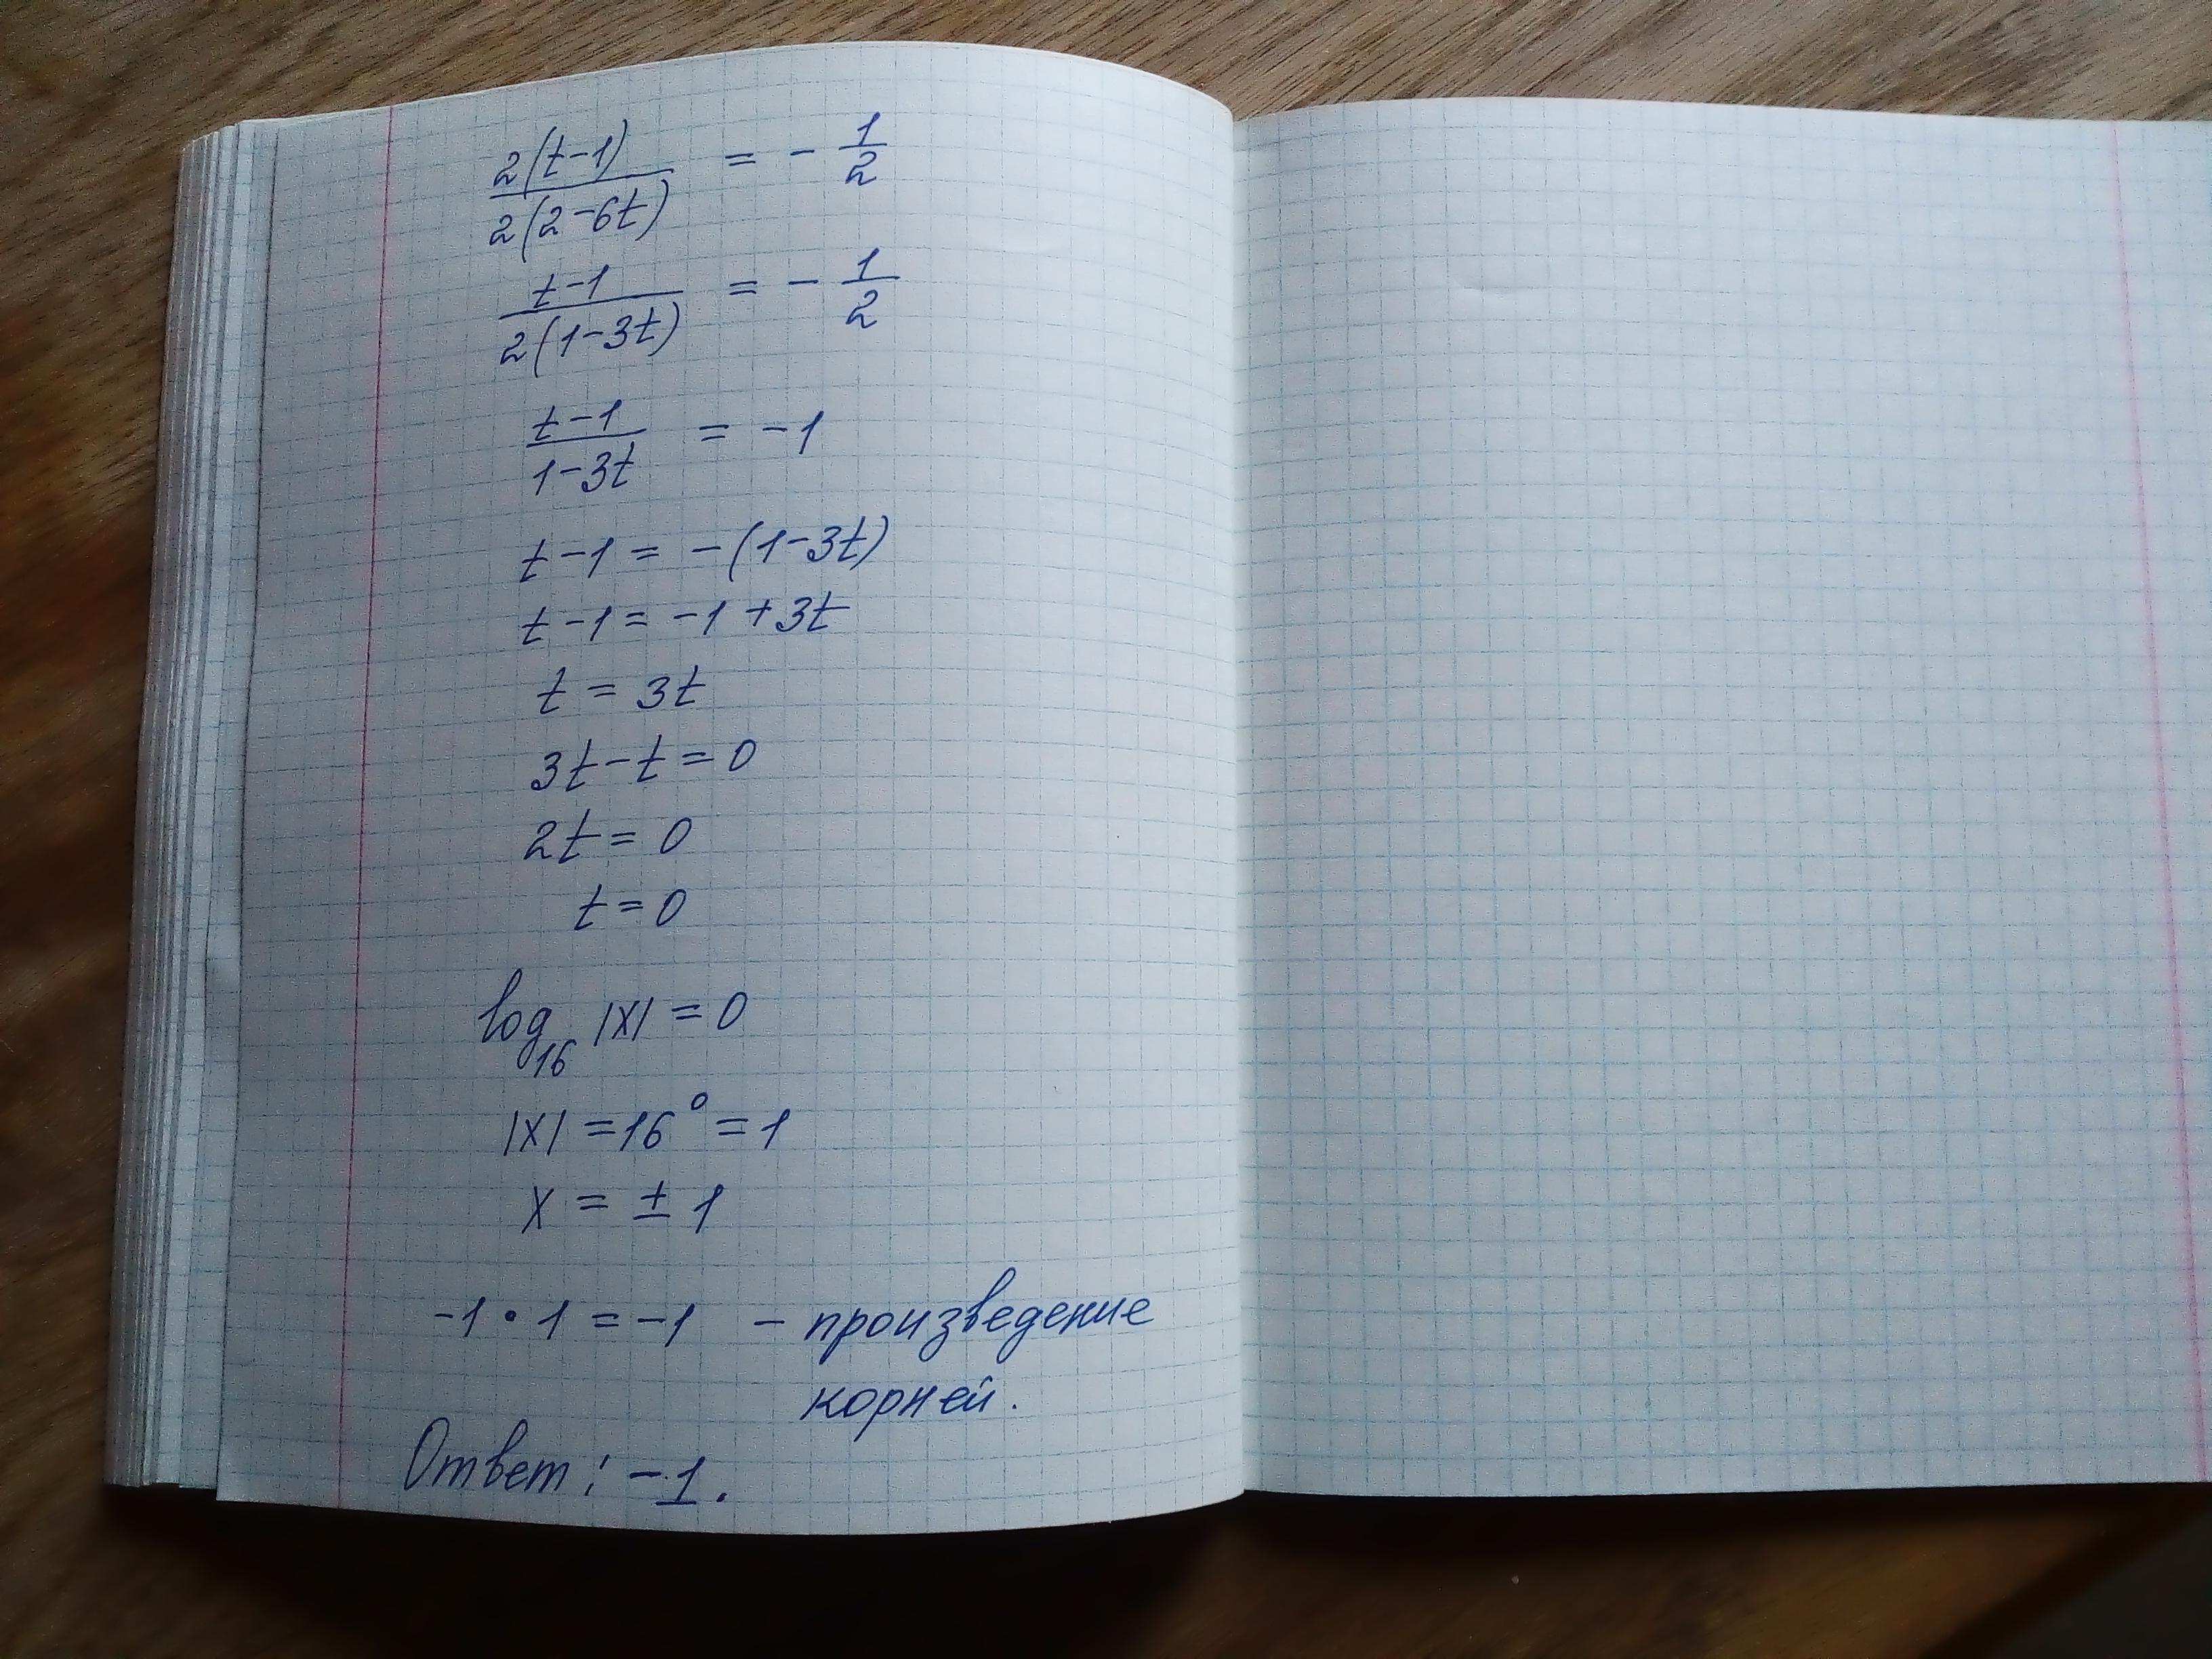 2(t-1)/2(2-6t) = - 1/2
t-1/2(1-3t) = - 1/2
t-1/1-3t = -1
t-1 = -(1-3t)
t-1 = -1+3t
t = 3t
3t-t=0
2t=0
t=0
log₁₆ |x| = 0
|x| = 16⁰ = 1
x = ± 1
-1 • 1 = -1 - произведение
корней.
Ответ: -1.